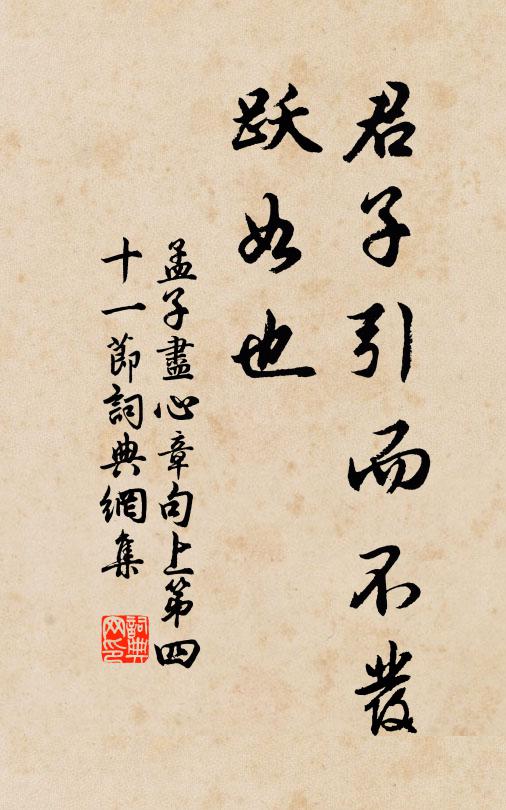 君子引而不發
躍如也
孟子盡心章句上第四
十一節詞典網集
詞典
网印